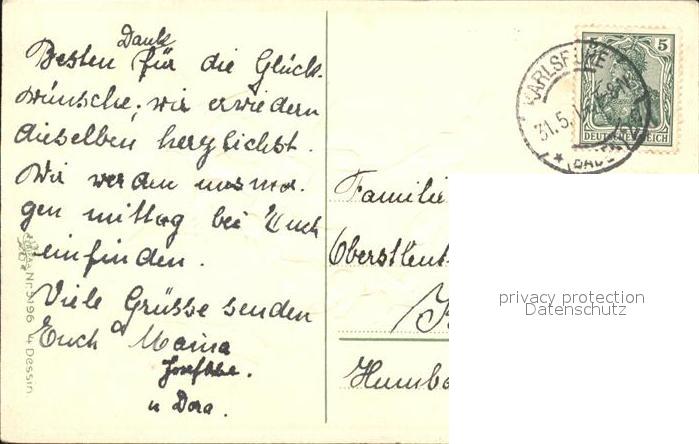 Besten Dank für die Glück-
wünsche, wir erwiedern
dieselben herzlichst.
Wir werden uns mor-
gen mittag bei Euch
einfinden.
Viele Grüsse senden
Euch Mama
u Dora.
Nr. 3196 4 Dessin
KARLSRUHE
31.5.
(BADEN)
5
DEUTSCHES REICH
Familie
Oberstleut
Humbo
privacy protection
Datenschutz